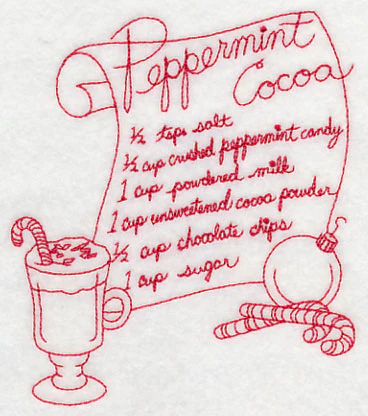 Peppermint
Cocoa
½ tsps salt
½ cup crushed peppermint candy
1 cup powdered milk
1 cup unsweetened cocoa powder
½ cup chocolate chips
1 cup sugar